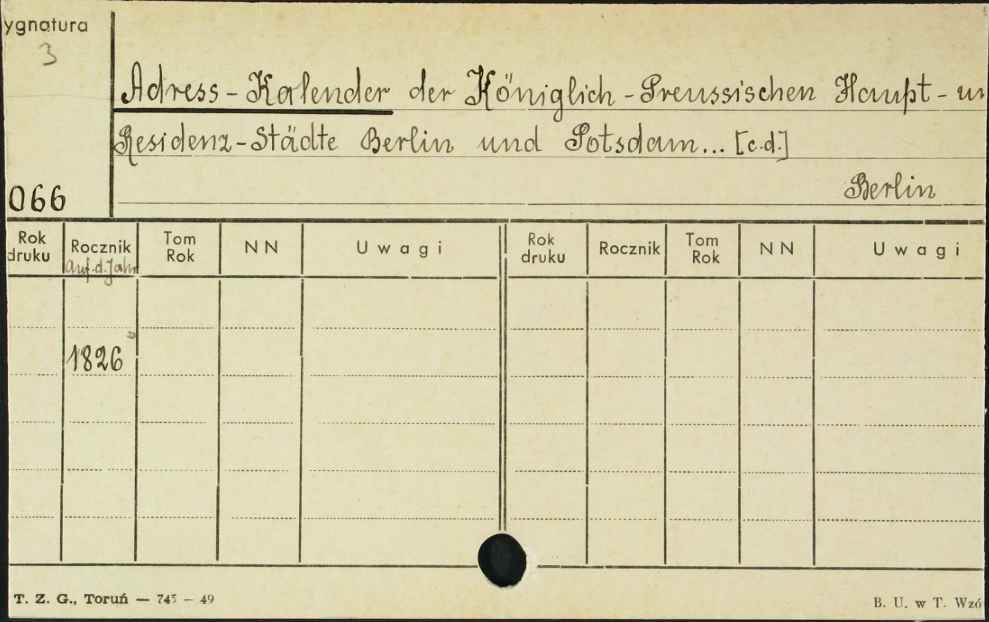 ygnatura
3
Adress-Kalender der Königlich-Preussischen Haupt- un
Residenz-Städte Berlin und Potsdam... [c.d.]
066
Berlin
Rok druku Rocznik Tom Rok NN Uwagi Rok druku Rocznik Tom Rok NN Uwagi
auf. d. Jahr
1826
T. Z. G., Toruń — 745 — 49
B. U. w T. Wzó